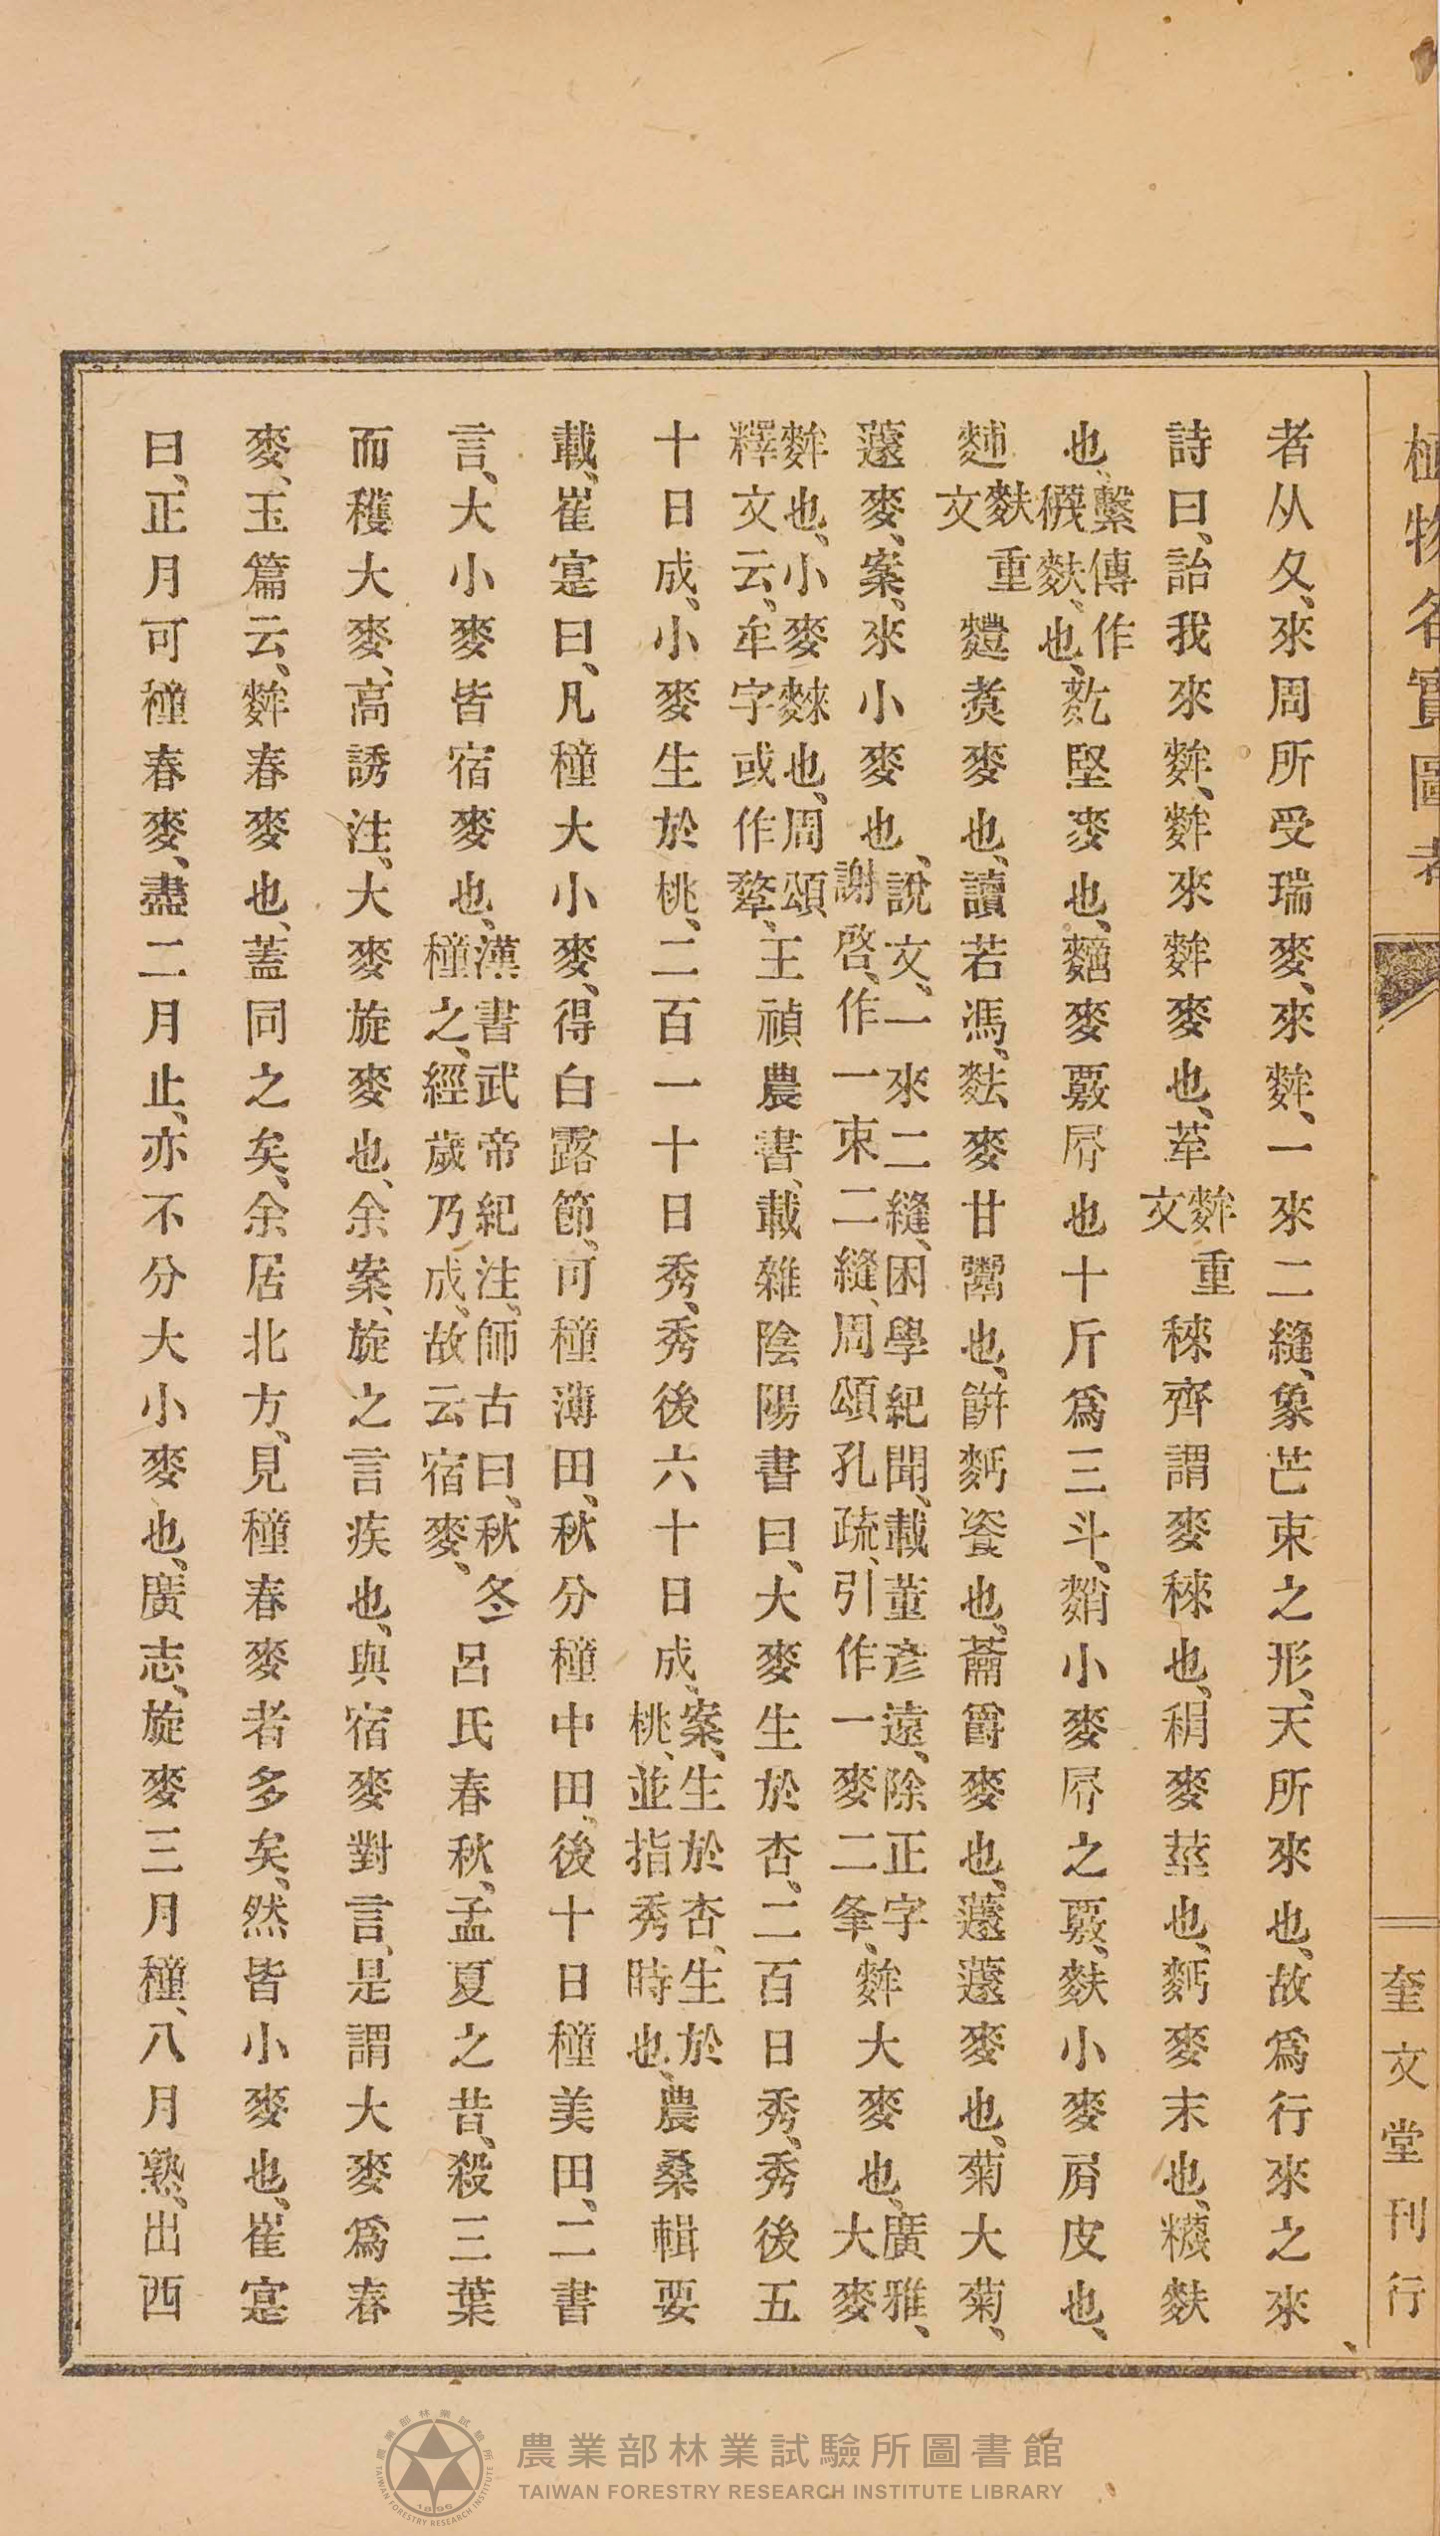 植物名實圖考
奎文堂刊行
者从夂、來周所受瑞麥、來麰、一來二縫、象芒朿之形、天所來也、故爲行來之來、
詩曰、詒我來麰、麰來麰麥也、䅌麰重文䅘齊謂麥䅘也、稍麥莖也、麪麥末也、糠麩
也、繫傳作䊯麩、也、麧堅麥也、麵麥覈屑也十斤爲三斗、䴛小麥屑之覈、麩小麥屑皮也、
麱麩重文麷煑麥也、讀若馮、麮麥甘鬻也、餅麪餈也、蘥爵麥也、蘧蘧麥也、菊大菊、
蘧麥、案、來小麥也、說文、一來二縫、困學紀聞、載董彥遠、除正字謝啓、作一朿二縫、周頌孔疏、引作一麥二夆、麰大麥也、廣雅、大麥
麰也、小麥䅘也、周頌釋文云、牟字或作䍒、王禎農書、載雜陰陽書曰、大麥生於杏、二百日秀、秀後五
十日成、小麥生於桃、二百一十日秀、秀後六十日成、案、生於杏、生於桃、並指秀時也、農桑輯要
載、崔寔曰、凡種大小麥、得白露節、可種薄田、秋分種中田、後十日種美田、二書
言、大小麥皆宿麥也、漢書武帝紀注、師古曰、秋冬種之、經歲乃成、故云宿麥、呂氏春秋、孟夏之昔、殺三葉
而穫大麥、高誘注、大麥旋麥也、余案、旋之言疾也、與宿麥對言、是謂大麥爲春
麥、玉篇云、麰春麥也、蓋同之矣、余居北方、見種春麥者多矣、然皆小麥也、崔寔
曰、正月可種春麥、盡二月止、亦不分大小麥也、廣志、旋麥三月種、八月熟、出西
農業部林業試驗所圖書館
TAIWAN FORESTRY RESEARCH INSTITUTE LIBRARY